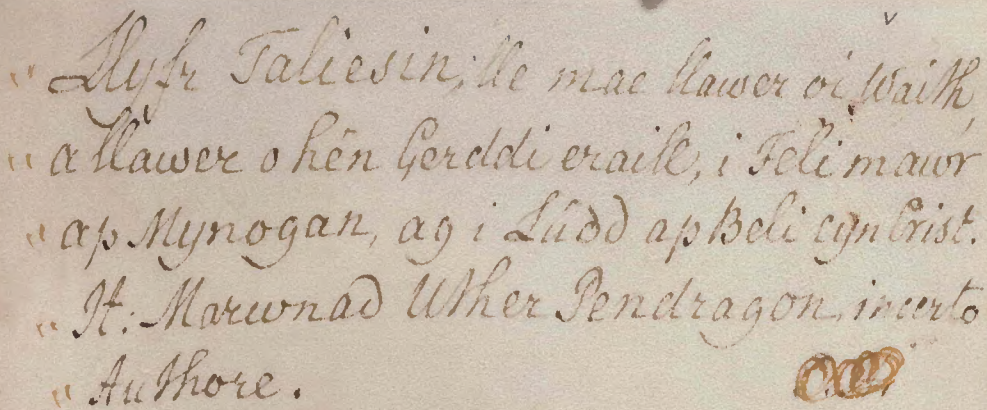 " Llyfr Taliesin; lle mae llawer oi Waith,
" a llawer o hên Gerddi eraill, i Feli mawr
" ap Mynogan, ag i Lûdd ap Beli cyn Crist.
" It: Marwnad Uther Pendragon, incerto
" Authore.